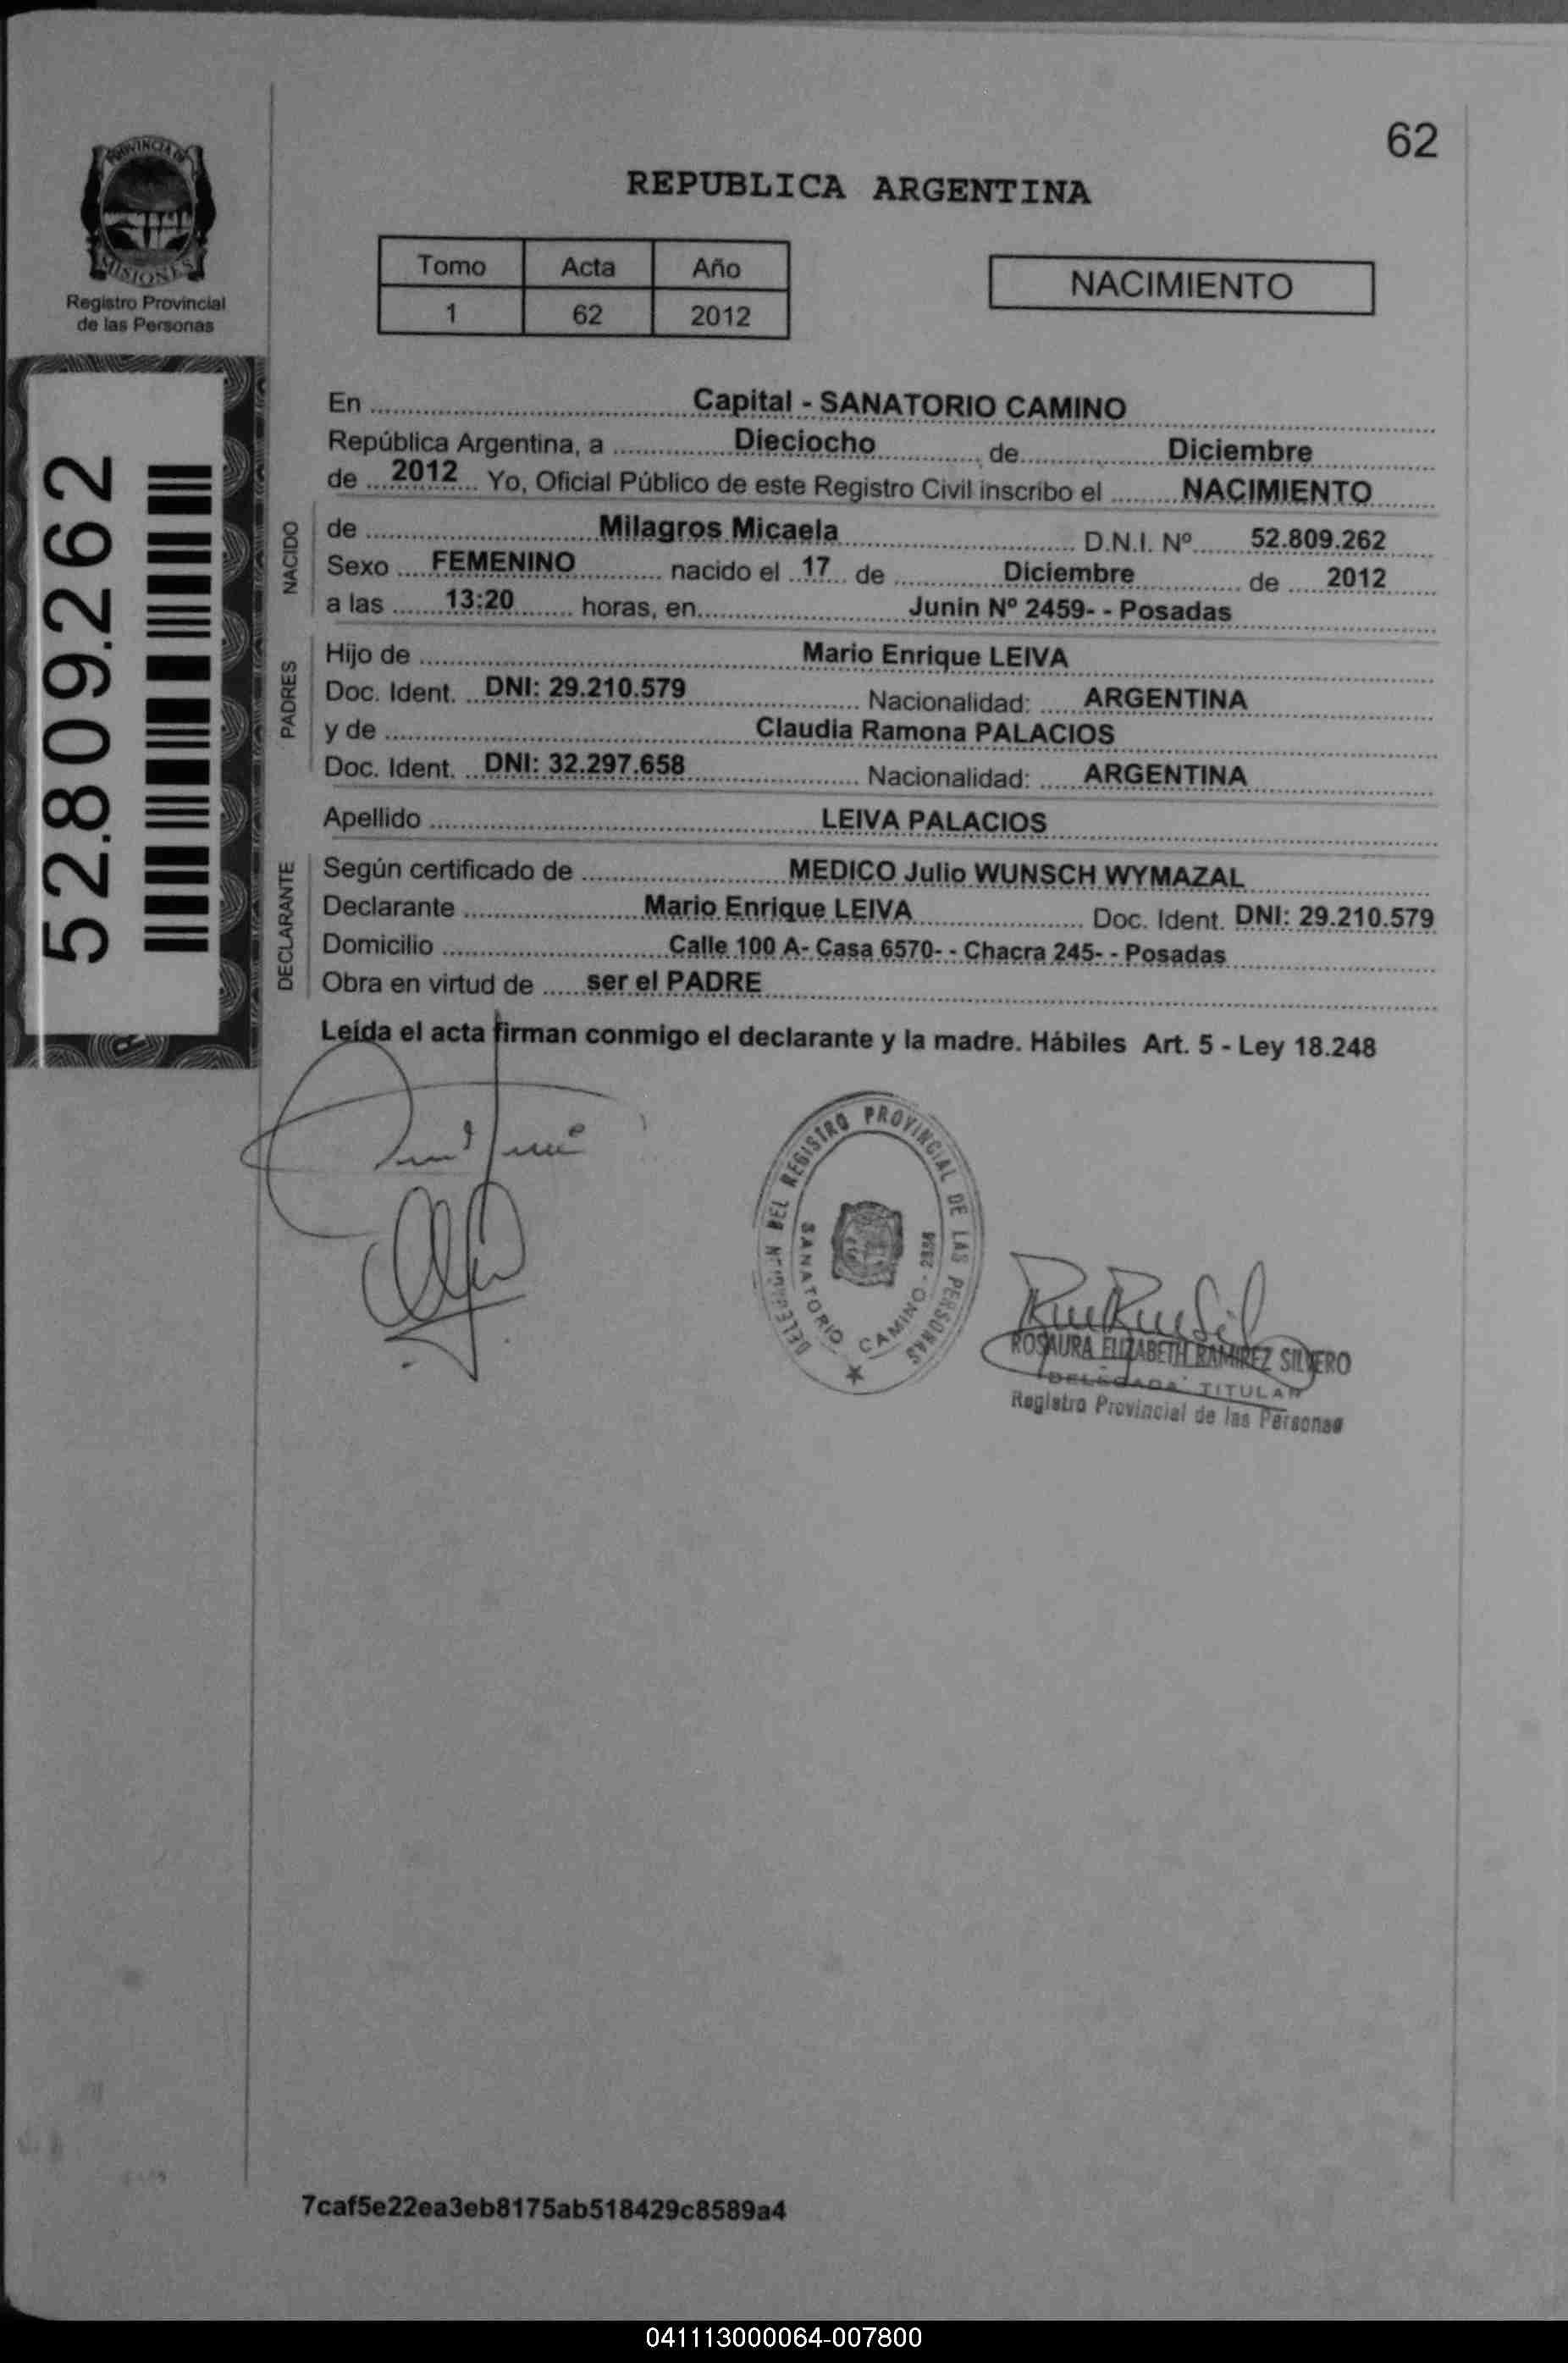 62
PROVINCIA DE
MISIONES
Registro Provincial
de las Personas
REPUBLICA ARGENTINA
Tomo Acta Año
1 62 2012
NACIMIENTO
52.809.262
En Capital - SANATORIO CAMINO
República Argentina, a Dieciocho de Diciembre
de 2012 Yo, Oficial Público de este Registro Civil inscribo el NACIMIENTO
NACIDO
de Milagros Micaela D.N.I. Nº 52.809.262
Sexo FEMENINO nacido el 17 de Diciembre de 2012
a las 13:20 horas, en Junin Nº 2459- - Posadas
PADRES
Hijo de Mario Enrique LEIVA
Doc. Ident. DNI: 29.210.579 Nacionalidad: ARGENTINA
y de Claudia Ramona PALACIOS
Doc. Ident. DNI: 32.297.658 Nacionalidad: ARGENTINA
Apellido LEIVA PALACIOS
DECLARANTE
Según certificado de MEDICO Julio WUNSCH WYMAZAL
Declarante Mario Enrique LEIVA Doc. Ident. DNI: 29.210.579
Domicilio Calle 100 A- Casa 6570- - Chacra 245- - Posadas
Obra en virtud de ser el PADRE
Leída el acta firman conmigo el declarante y la madre. Hábiles Art. 5 - Ley 18.248
DEL REGISTRO PROVINCIAL DE LAS PERSONAS
SANATORIO CAMINO
ROSAURA ELIZABETH RAMIREZ SILVERO
DELEGADA TITULAR
Registro Provincial de las Personas
7caf5e22ea3eb8175ab518429c8589a4
041113000064-007800